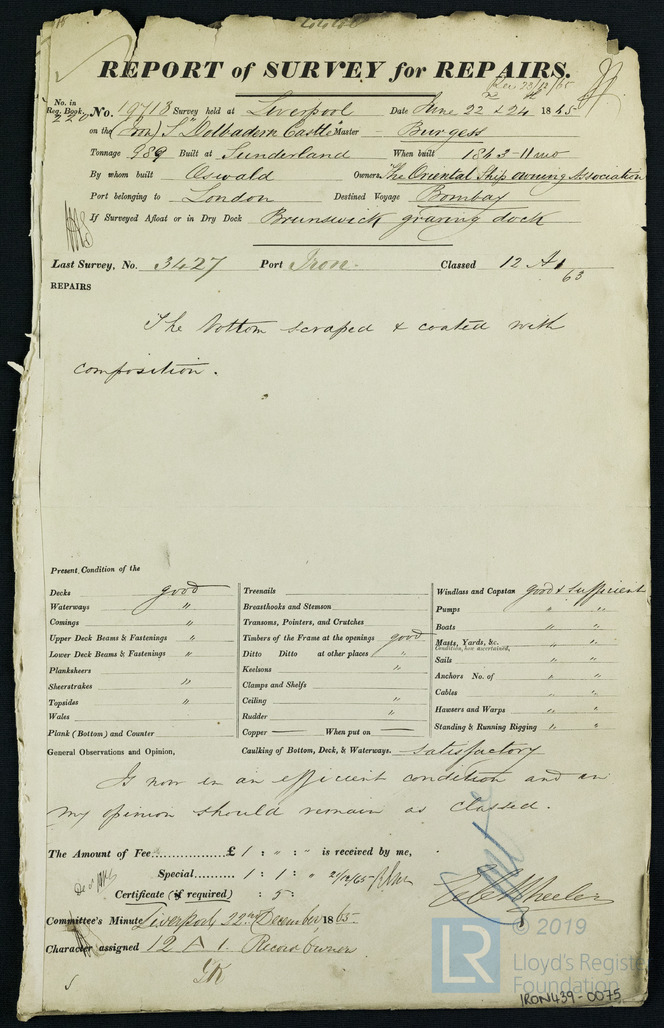 REPORT of SURVEY for REPAIRS.
Rec 23/12/65
No. in Reg. Book. 220 No. 19713 Survey held at Liverpool Date June 22 & 24 1865
on the (Iron) S "Dolbadern Castle" Master Burgess
Tonnage 989 Built at Sunderland When built 1863 - 11 mo
By whom built Oswald Owners, The Oriental Ship owning Association
Port belonging to London Destined Voyage Bombay
If Surveyed Afloat or in Dry Dock Brunswick graving dock
Last Survey, No. 3427 Port Iron. Classed 12 A1 63
REPAIRS
The bottom scraped & coated with
composition.
Present Condition of the
Decks good
Waterways "
Comings "
Upper Deck Beams & Fastenings "
Lower Deck Beams & Fastenings "
Planksheers
Sheerstrakes "
Topsides "
Wales
Plank (Bottom) and Counter
Treenails
Breasthooks and Stemson
Transoms, Pointers, and Crutches
Timbers of the Frame at the openings good
Ditto Ditto at other places "
Keelsons "
Clamps and Shelfs
Ceiling "
Rudder "
Copper — When put on —
Windlass and Capstan good & sufficient
Pumps " "
Boats " "
Masts, Yards, &c. " "
Condition, how ascertained,
Sails " "
Anchors No. of " "
Cables " "
Hawsers and Warps " "
Standing & Running Rigging " "
General Observations and Opinion, Caulking of Bottom, Deck, & Waterways. satisfactory
Is now in an efficient condition and in
my opinion should remain as classed.
The Amount of Fee £ 1 : " : " is received by me,
Special 1 : 1 : " 21/12/65
Certificate (if required) : 5 :
Committee's Minute Liverpool 22nd December 1865.
Character assigned 12 A 1. Record Owner
© 2019
LR Lloyd's Register
Foundation
IRON439-0075